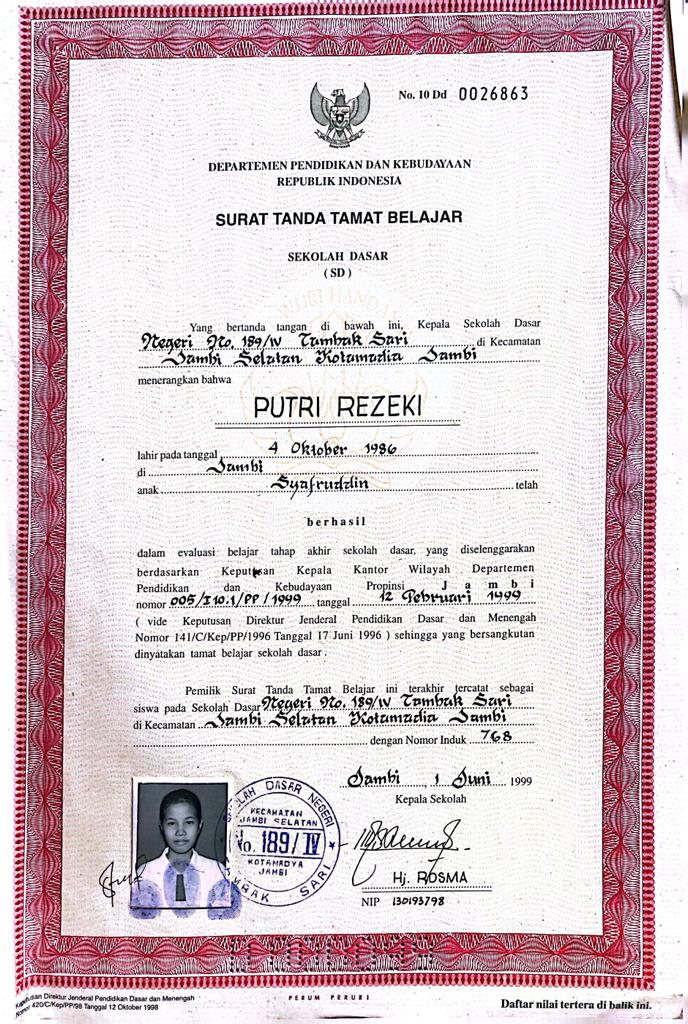 No. 10 Dd 0026863
DEPARTEMEN PENDIDIKAN DAN KEBUDAYAAN
REPUBLIK INDONESIA
SURAT TANDA TAMAT BELAJAR
SEKOLAH DASAR
( SD )
Yang bertanda tangan di bawah ini, Kepala Sekolah Dasar
Negeri No. 189/IV Tambak Sari di Kecamatan
Jambi Selatan Kotamadia Jambi
menerangkan bahwa
PUTRI REZEKI
lahir pada tanggal 4 Oktober 1986
di Jambi
anak Syafruddin telah
berhasil
dalam evaluasi belajar tahap akhir sekolah dasar, yang diselenggarakan
berdasarkan Keputusan Kepala Kantor Wilayah Departemen
Pendidikan dan Kebudayaan Propinsi Jambi
nomor 005/I10.1/PP/1999 tanggal 12 Pebruari 1999
( vide Keputusan Direktur Jenderal Pendidikan Dasar dan Menengah
Nomor 141/C/Kep/PP/1996 Tanggal 17 Juni 1996 ) sehingga yang bersangkutan
dinyatakan tamat belajar sekolah dasar.
Pemilik Surat Tanda Tamat Belajar ini terakhir tercatat sebagai
siswa pada Sekolah Dasar Negeri No. 189/IV Tambak Sari
di Kecamatan Jambi Selatan Kotamadia Jambi
dengan Nomor Induk 768
Jambi, 1 Juni 1999
Kepala Sekolah
SEKOLAH DASAR NEGERI
KECAMATAN
JAMBI SELATAN
No. 189/IV
KOTAMADYA
JAMBI
TAMBAK SARI
Hj. ROSMA
NIP 130193798
Keputusan Direktur Jenderal Pendidikan Dasar dan Menengah
Nomor 420/C/Kep/PP/98 Tanggal 12 Oktober 1998
PERUM PERURI
Daftar nilai tertera di balik ini.